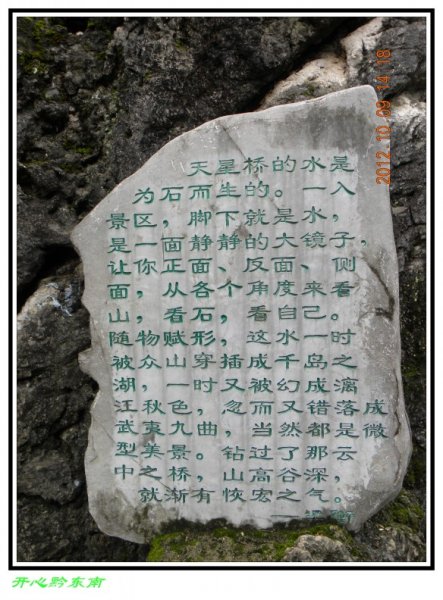 天星桥的水是
为石而生的。一入
景区，脚下就是水，
是一面静静的大镜子，
让你正面、反面、侧
面，从各个角度来看
山，看石，看自己。
随物赋形，这水一时
被众山穿插成千岛之
湖，一时又被幻成漓
江秋色，忽而又错落成
武夷九曲，当然都是微
型美景。钻过了那云
中之桥，山高谷深，
就渐有恢宏之气。
2012.10.09 14:18
开心黔东南